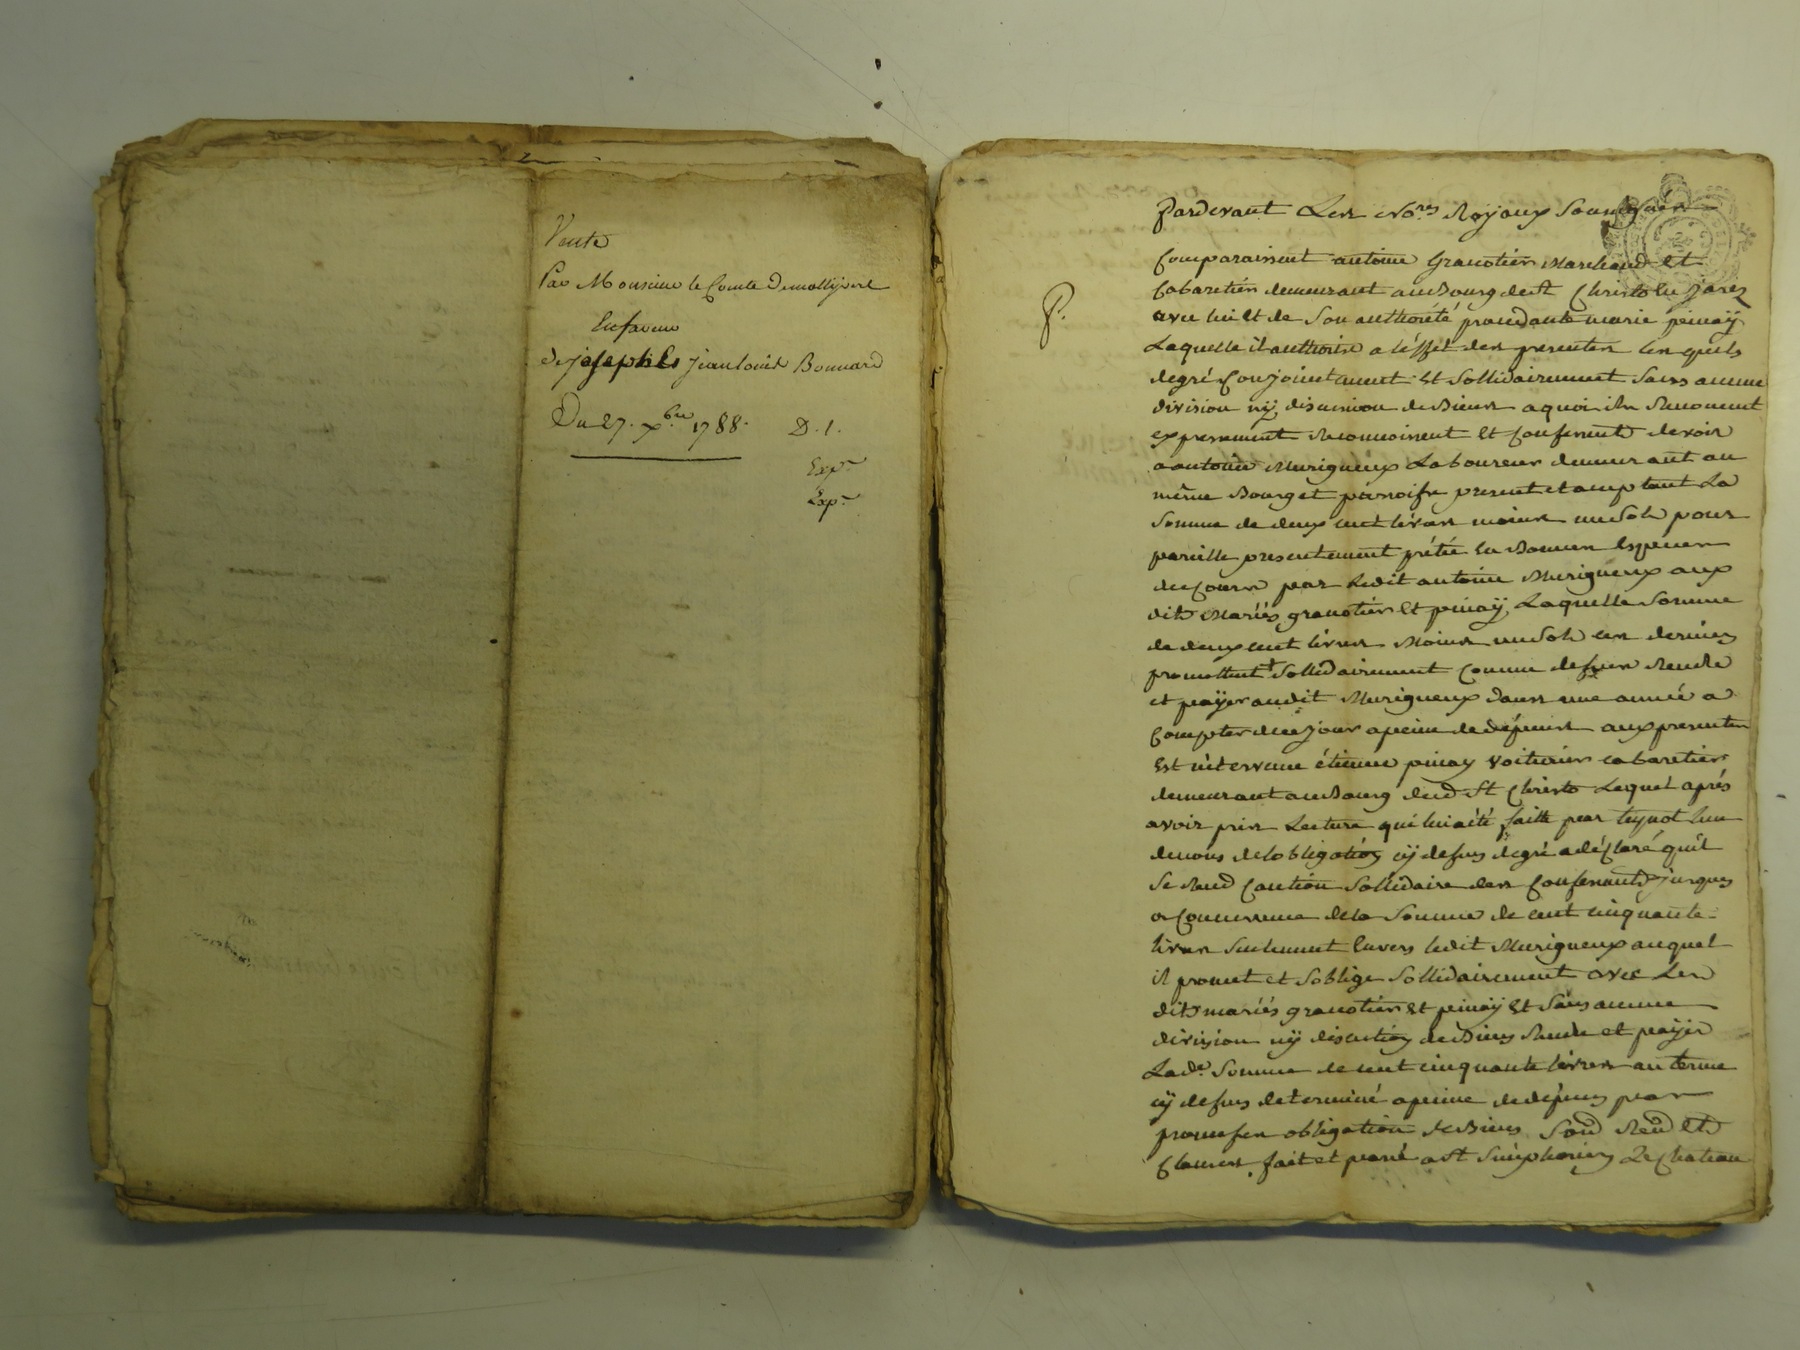 Vente
Par Monsieur le Comte Demollyvert
En faveur
de joseph et Jean louis Bonnard
Du 27. xbre 1788. D. 1.
Expn
Expn
P.
Pardevant Les nores Royaux Soussignés
Comparaissent antoine Granotier Marchand Et
Cabaretier demeurant au Bourg de St Christo En jarez
avec lui Et de Son authorité procedante marie pinaÿ
Laquelle il authorise a l'éffet des presentes les quels
de gré Conjointement Et Sollidairement Sans aucune
division nÿ discussion de Biens a quoi ils Renoncent
expressement Reconnoissent Et Confessent devoir
a antoine Murigneux Laboureur demeurant au
même Bourg et parroisse present et acceptant La
Somme de deux cent livres moins un Sol pour
pareille presentement prétée En Bonnes Especes
de Cours par Ledit antoine Murigneux aux
dits Mariés granotier Et pinaÿ, Laquelle Somme
de deux cent livres Moins un Sol ces derniers
promettent Sollidairement Comme dessus Rendre
et paÿer audit Murigneux dans une année a
Compter de ce jour a peine de dépens aux presentes
Est intervenu étienne pinay Voiturier cabaretier
demeurant au Bourg dud St Christo Lequel aprés
avoir pris Lecture qui lui a été faitte par l'un
de nous de l'obligation cÿ dessus de gré a déClaré qu'il
Se Rend Caution Sollidaire des Confessants jusques
a Concurrence de la Somme de cent cinquante
livres Seulement Envers ledit Murigneux auquel
il promet et S'oblige Sollidairement avec Les
dits mariés granotier Et pinaÿ Et Sans aucune
division nÿ discution de Biens Rendre et paÿer
Lade Somme de cent cinquante livres au terme
cÿ dessus determiné a peine de dépens par
promesses obligation de Biens Soud Rend Etd
Clauses. fait et passé a St Simphorien Le Chateau